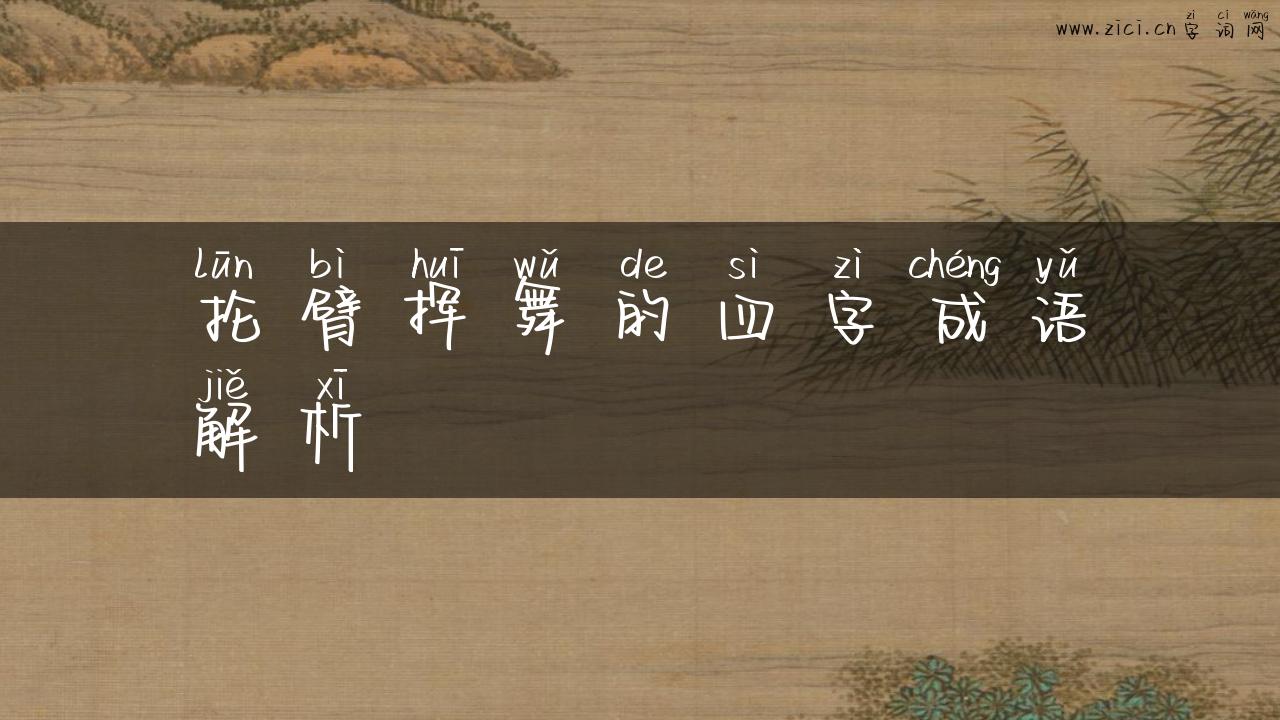 zì cí wǎng
www.zici.cn 字词网
lūn bì huī wǔ de sì zì chéng yǔ
抡臂挥舞的四字成语
jiě xī
解析